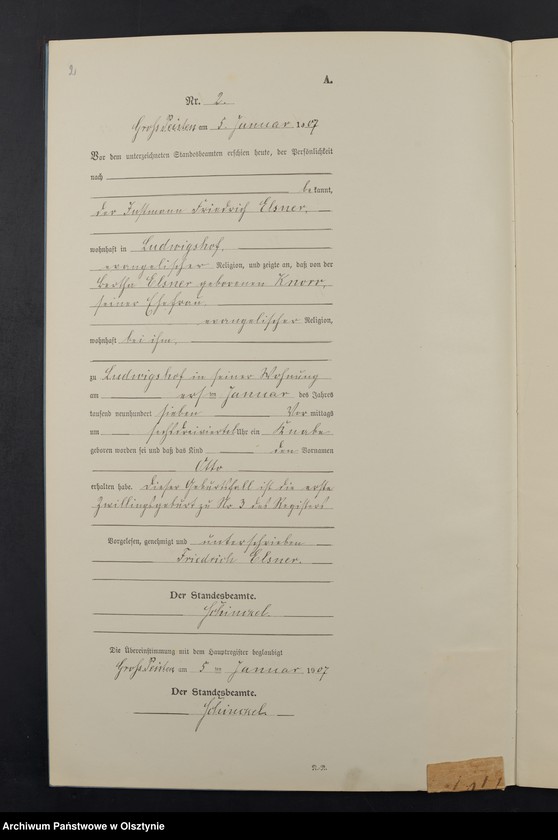 2
A.
Nr. 2.
Groß Peisten am 5. Januar 1907
Vor dem unterzeichneten Standesbeamten erschien heute, der Persönlichkeit
nach
bekannt,
der Instmann Friedrich Elsner,
wohnhaft in Ludwigshof,
evangelischer Religion, und zeigte an, daß von der
Bertha Elsner geborenen Knorr,
seiner Ehefrau
evangelischer Religion,
wohnhaft bei ihm,
zu Ludwigshof in seiner Wohnung
am ersten Januar des Jahres
tausend neunhundert sieben Vor mittags
um sechsdreiviertel Uhr ein Knabe
geboren worden sei und daß das Kind den Vornamen
Otto
erhalten habe. Dieser Geburtsfall ist die erste
Zwillingsgeburt zu Nr 3 des Registers
Vorgelesen, genehmigt und unterschrieben
Friedrich Elsner.
Der Standesbeamte.
Die Übereinstimmung mit dem Hauptregister beglaubigt
Groß Peisten am 5 ten Januar 1907
Der Standesbeamte.
Archiwum Państwowe w Olsztynie